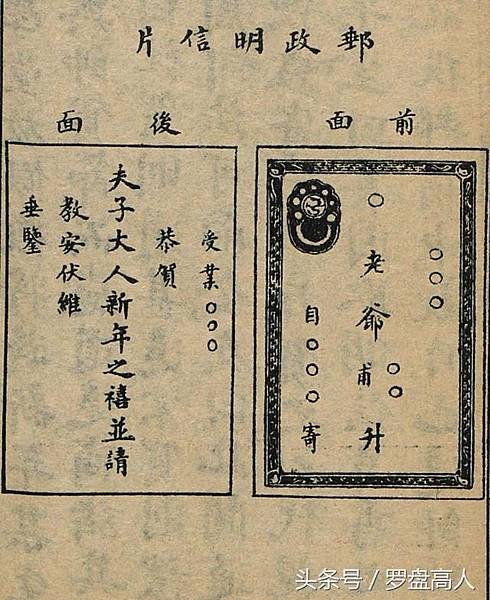 郵政明信片
前面
○○○
○老爺甫升
○○
自○○○寄
後面
受業○○○
恭賀
夫子大人新年之禧並請
教安伏維
垂鑒
头条号／罗盘高人